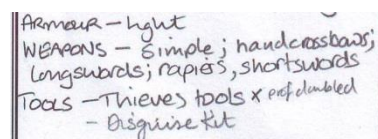 ARMOUR - Light
WEAPONS - Simple; handcrossbows;
longswords; rapiers, shortswords
TOOLS - Thieves tools x prof doubled
- Disguise Kit